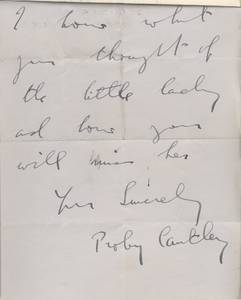 I know what
you thought of
the little lady
and how you
will miss her
Yrs Sincerely
Proby Cautley